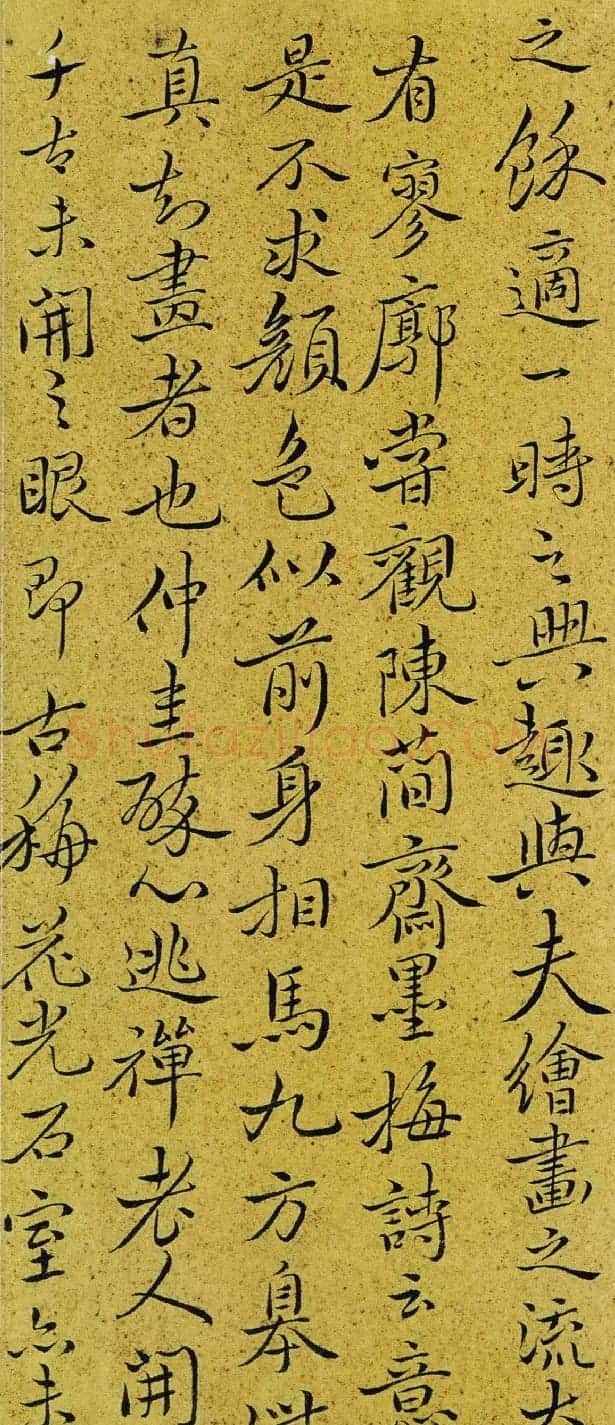 之餘適一時之興趣與夫繪畫之流大
有寥廓嘗觀陳簡齋墨梅詩云意
是不求顏色似前身相馬九方皋此
真知畫者也仲圭醉心逃禪老人開
千古未開之眼即古梅花光石室亦未
shufaziliao.com